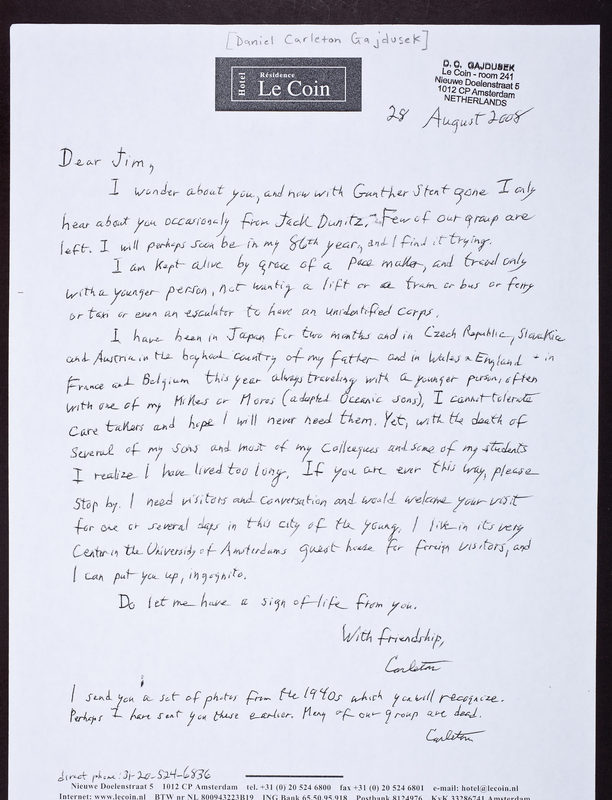 [Daniel Carleton Gajdusek]
Hotel
Résidence
Le Coin
D. C. GAJDUSEK
Le Coin - room 241
Nieuwe Doelenstraat 5
1012 CP Amsterdam
NETHERLANDS
28 August 2008
Dear Jim,
I wonder about you, and now with Gunther Stent gone I only
hear about you occasionaly from Jack Dunitz. - Few of our group are
left. I will perhaps soon be in my 86th year, and I find it trying.
I am kept alive by grace of a pace maker, and travel only
with a younger person, not wanting a lift or a tram or bus or ferry
or taxi or even an escalator to have an unidentified corps.
I have been in Japan for two months and in Czech Republic, Slovakia
and Austria in the boyhood country of my father and in Wales + England + in
France and Belgium this year always traveling with a younger person, often
with one of my Mikes or Moros (adopted Oceanic sons), I cannot tolerate
care takers and hope I will never need them. Yet, with the death of
several of my sons and most of my colleagues and some of my students
I realize I have lived too long. If you are ever this way, please
stop by. I need visitors and conversation and would welcome your visit
for one or several days in this city of the young. I live in its very
center in the University of Amsterdams guest house for foreign visitors, and
I can put you up, incognito.
Do let me have a sign of life from you.
With friendship,
Carleton
I send you a set of photos from the 1940s which you will recognize.
Perhaps I have sent you these earlier. Many of our group are dead.
Carleton
direct phone: 31-20-524-6836
Nieuwe Doelenstraat 5 1012 CP Amsterdam tel. +31 (0) 20 524 6800 fax +31 (0) 20 524 6801 e-mail: hotel@lecoin.nl
Internet: www.lecoin.nl BTW nr NL 800943223B19 ING Bank 65.50.95.918 Postbank 8124976 KvK 33286741 Amsterdam